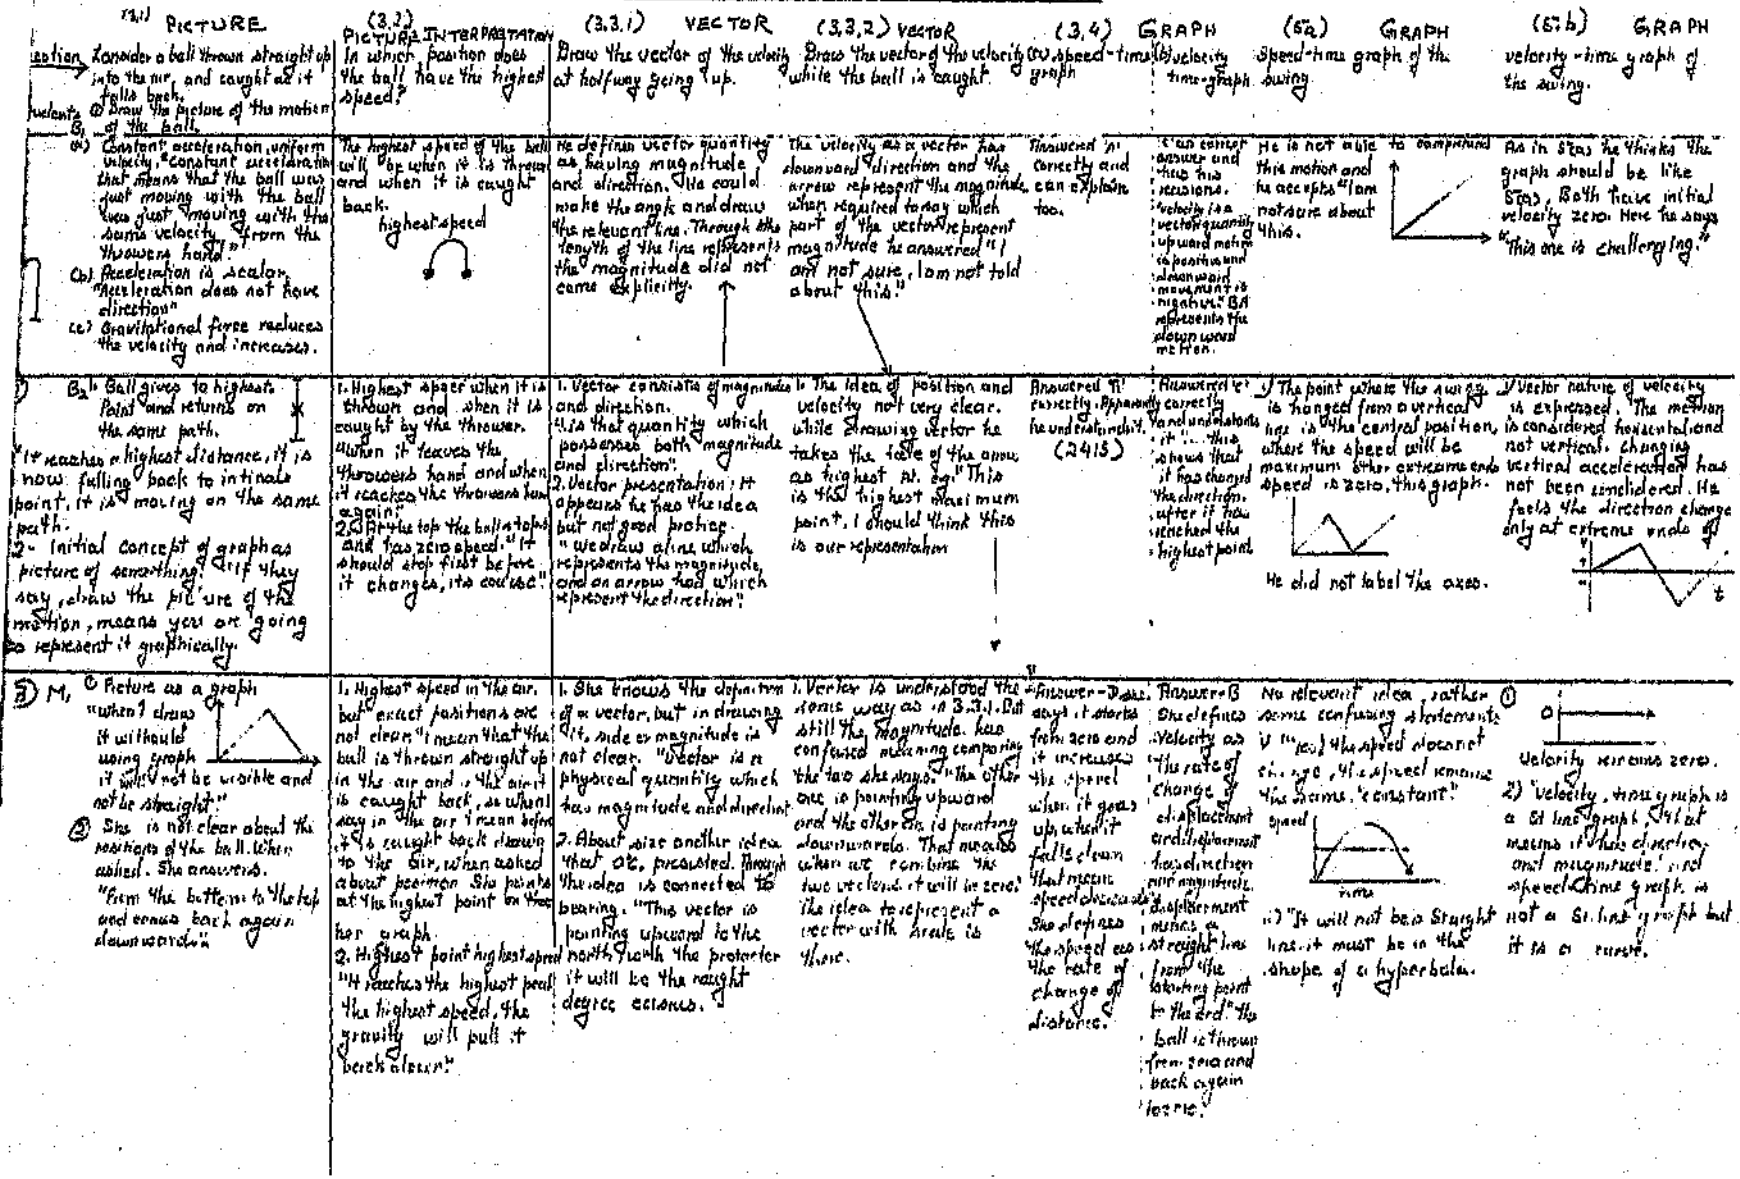 (3.1) PICTURE
Consider a ball thrown straight up
into the air, and caught as it
falls back.
① Draw the picture of the motion
of the ball.
(3.2)
PICTURE INTERPRETATION
In which position does
the ball have the highest
speed?
(3.3.1) VECTOR
Draw the vector of the velocity
at halfway going up.
(3.3.2) VECTOR
Draw the vector of the velocity
while the ball is caught.
(3.4) GRAPH
(a) speed-time
graph
(b) velocity
time-graph
(5a) GRAPH
Speed-time graph of the
swing.
(5.b) GRAPH
velocity-time graph of
the swing.
B₁
(a) Constant acceleration, uniform
velocity, "constant acceleration
that means that the ball was
just moving with the ball
was just moving with the
same velocity from the
throwers hand."
(b) Acceleration is scalar.
"Acceleration does not have
direction"
(c) Gravitational force reduces
the velocity and increases.
The highest speed of the ball
will be when it is thrown
and when it is caught
back.
highest speed
He defines vector quantity
as having magnitude
and direction. He could
make the angle and draw
the relevant line. Through the
length of the line represents
the magnitude did not
come explicitly.
The velocity as a vector has
downward direction and the
arrow represent the magnitude
when required to say which
part of the vector represent
magnitude he answered "I
am not sure, I am not told
about this."
Answered 'A'
correctly and
can explain
too.
answer and
has his
reasons.
"velocity is a
vector quantity
upward motion
is positive and
downward
movement is
negative." BA
represents the
downward
motion.
He is not able to comprehend
this motion and
he accepts "I am
not sure about
this.
As in 5(a) he thinks the
graph should be like
5(a). Both have initial
velocity zero. Here he says
"This one is challenging."
B₂ 1. Ball gives to highest
Point and returns on
the same path.
"It reaches a highest distance, it is
now falling back to intinale
point, it is moving on the same
path.
2- Initial concept of graph as
picture of something. "If they
say, draw the picture of the
motion, means you are going
to represent it graphically.
1. Highest speed when it is
thrown and when it is
caught by the thrower.
"when it leaves the
throwers hand and when
it reaches the throwers hand
again."
2. At the top the ball stops
and has zero speed. "It
should stop first before
it changes, its course."
1. Vector consists of magnitude
and direction.
"is that quantity which
possesses both magnitude
and direction".
2. Vector presentation; It
appears he has the idea
but not good
"we draw a line which
represents the magnitude,
and an arrow had which
represent the direction".
1. The idea of position and
velocity not very clear.
while drawing vector he
takes the of the arrow
as highest pt. eg. "This
is the highest maximum
point, I should think this
is our representation
Answered 'A'
correctly. Apparently
he understands it.
(2415)
Answered 'C'
correctly
and understands
it "... this
shows that
it has changed
the direction.
after it has
reached the
highest point
1) The point where the swing
is hanged from a vertical
line is the central position,
where the speed will be
maximum other extreame ends
speed is zero, this graph.
He did not label the axes.
1) Vector nature of velocity
is expressed. The motion
is considered horizontal, and
not vertical. changing
vertical acceleration has
not been considered. He
feels the direction change
only at extreme ends of
v
t
③ M₁ ① Picture as a graph
"when I draw
it without
using graph
it will not be visible and
not be straight"
② She is not clear about the
positions of the ball. When
asked. She answers.
"From the bottom to the top
and comes back again
downwards".
1. Highest speed in the air.
but exact positions are
not clear "i mean that the
ball is thrown straight up
in the air and in the air it
is caught back, so when I
say in the air i mean before
it is caught back down
to the air, when asked
about position She points
at the highest point on
her graph.
2. Highest point highest speed
"It reaches the highest peak
the highest speed, the
gravity will pull it
back down."
1. She knows the definition
of a vector, but in drawing
it, side or magnitude is
not clear. "Vector is a
physical quantity which
has magnitude and direction
2. About size another idea
that is presented. Through
the idea is connected to
bearing. "This vector is
pointing upward to the
north, north the protractor
it will be the naught
degree
1. Vector is understood the
same way as in 3.3.1. But
still the magnitude has
confused meaning comparing
the two she says. "The other
one is pointing upward
and the other one is pointing
downwards. That means
when we combine the
two vectors it will be zero."
The idea to represent a
vector with scale is
there.
Answer-D she
says it starts
from zero and
it increases
the speed
when it goes
up, when it
falls down
that mean
speed decreases
She defines
the speed as
the rate of
change of
distance.
Answer-B
She defines
velocity as
the rate of
change of
displacement
and displacement
has direction
and magnitude.
displacement
means a
straight line
from the
starting point
to the end." The
ball is thrown
from zero and
back again
to zero."
No relevant idea, rather
some confusing statements
the speed does not
change, the speed remains
the same. "constant"
speed
time
ii) "It will not be a Straight
line. it must be in the
shape of a hyperbola.
①
0
Velocity remains zero.
2) "Velocity, time graph is
a St line graph, that
means it has direction
and magnitude" and
speed-time graph is
not a St. line graph but
it is a curve.